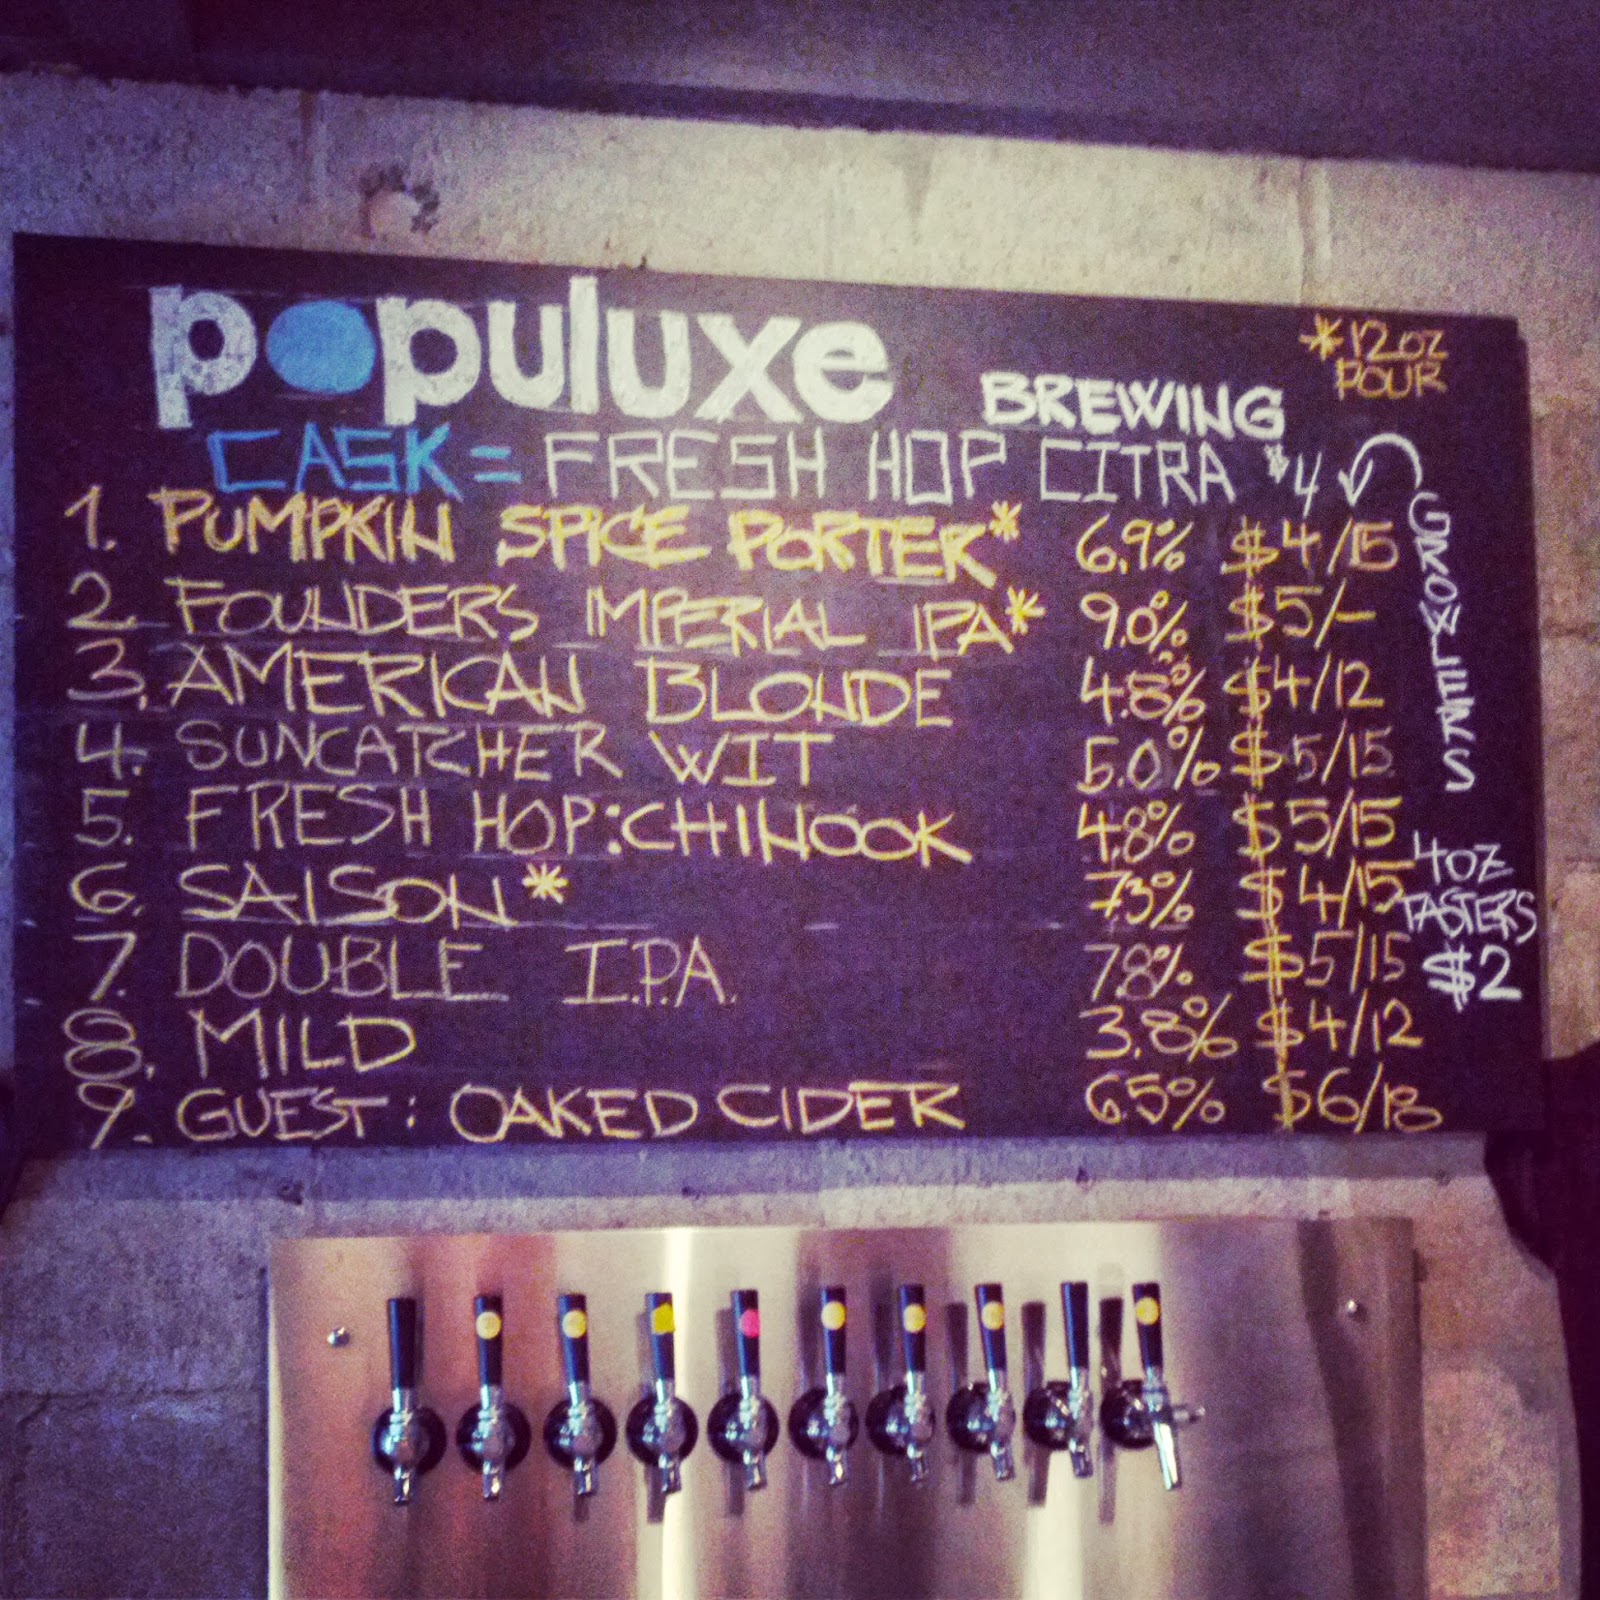 populuxe BREWING
*12OZ
POUR
CASK = FRESH HOP CITRA $4
1. PUMPKIN SPICE PORTER* 6.9% $4/15
2. FOUNDERS IMPERIAL I.P.A* 9.0% $5/-
3. AMERICAN BLONDE 4.8% $4/12
4. SUNCATCHER WIT 5.0% $5/15
5. FRESH HOP: CHINOOK 4.8% $5/15
6. SAISON* 7.3% $4/15
7. DOUBLE I.P.A. 7.8% $5/15
8. MILD 3.8% $4/12
9. GUEST: OAKED CIDER 6.5% $6/18
GROWLERS
4OZ
TASTERS
$2